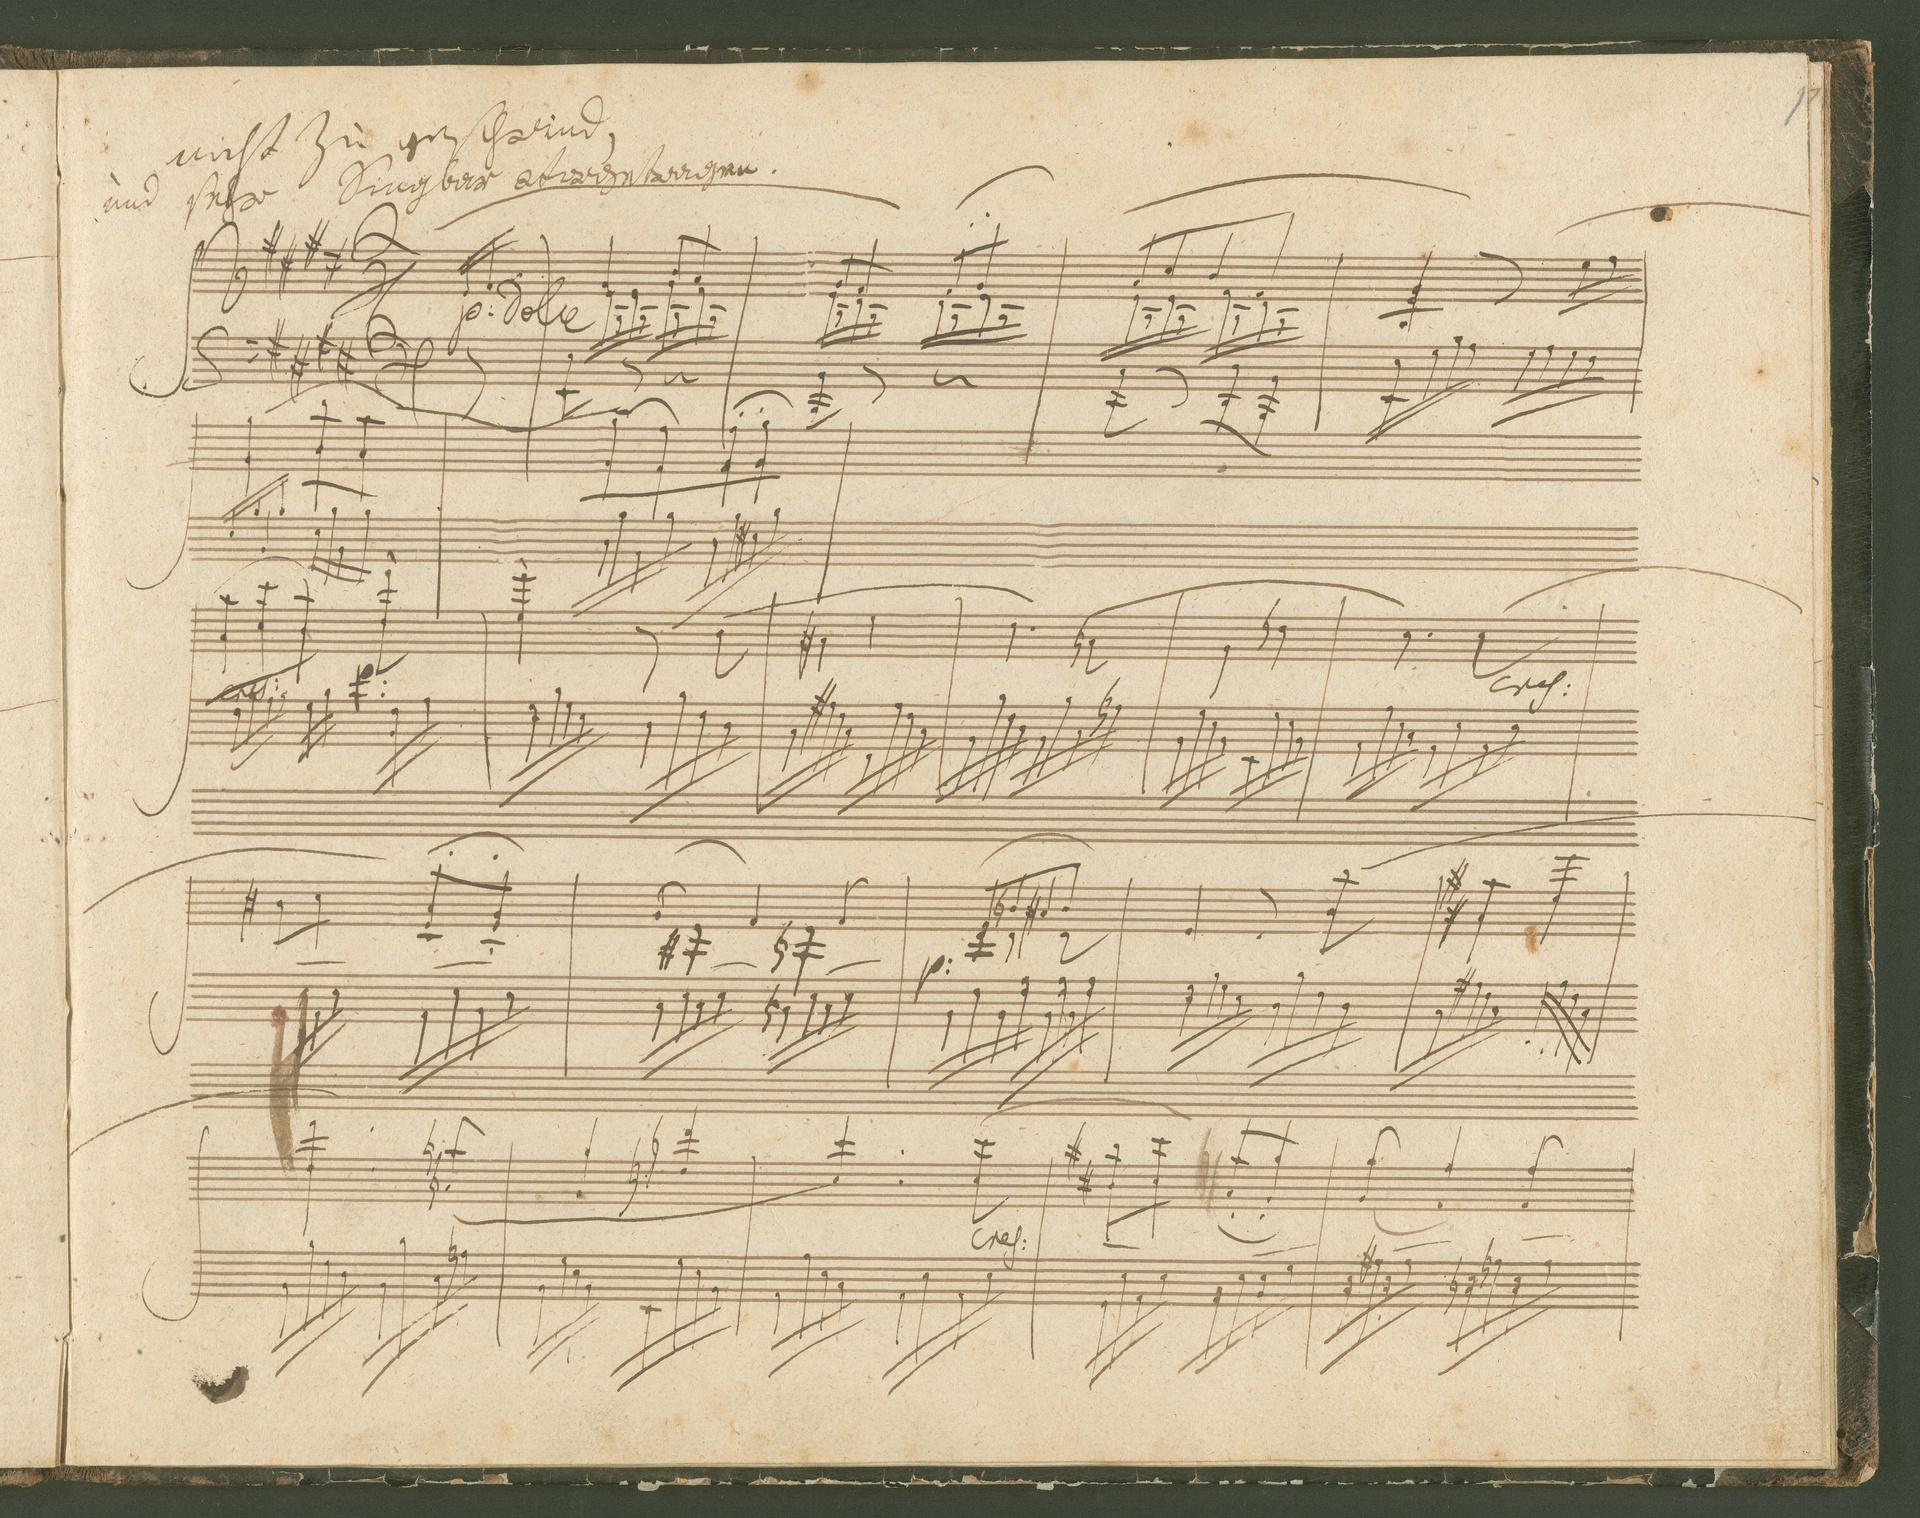 nicht zu geschwind,
und sehr Singbar vorgetragen.
p: dolce
cres:
cres:
p:
cres: